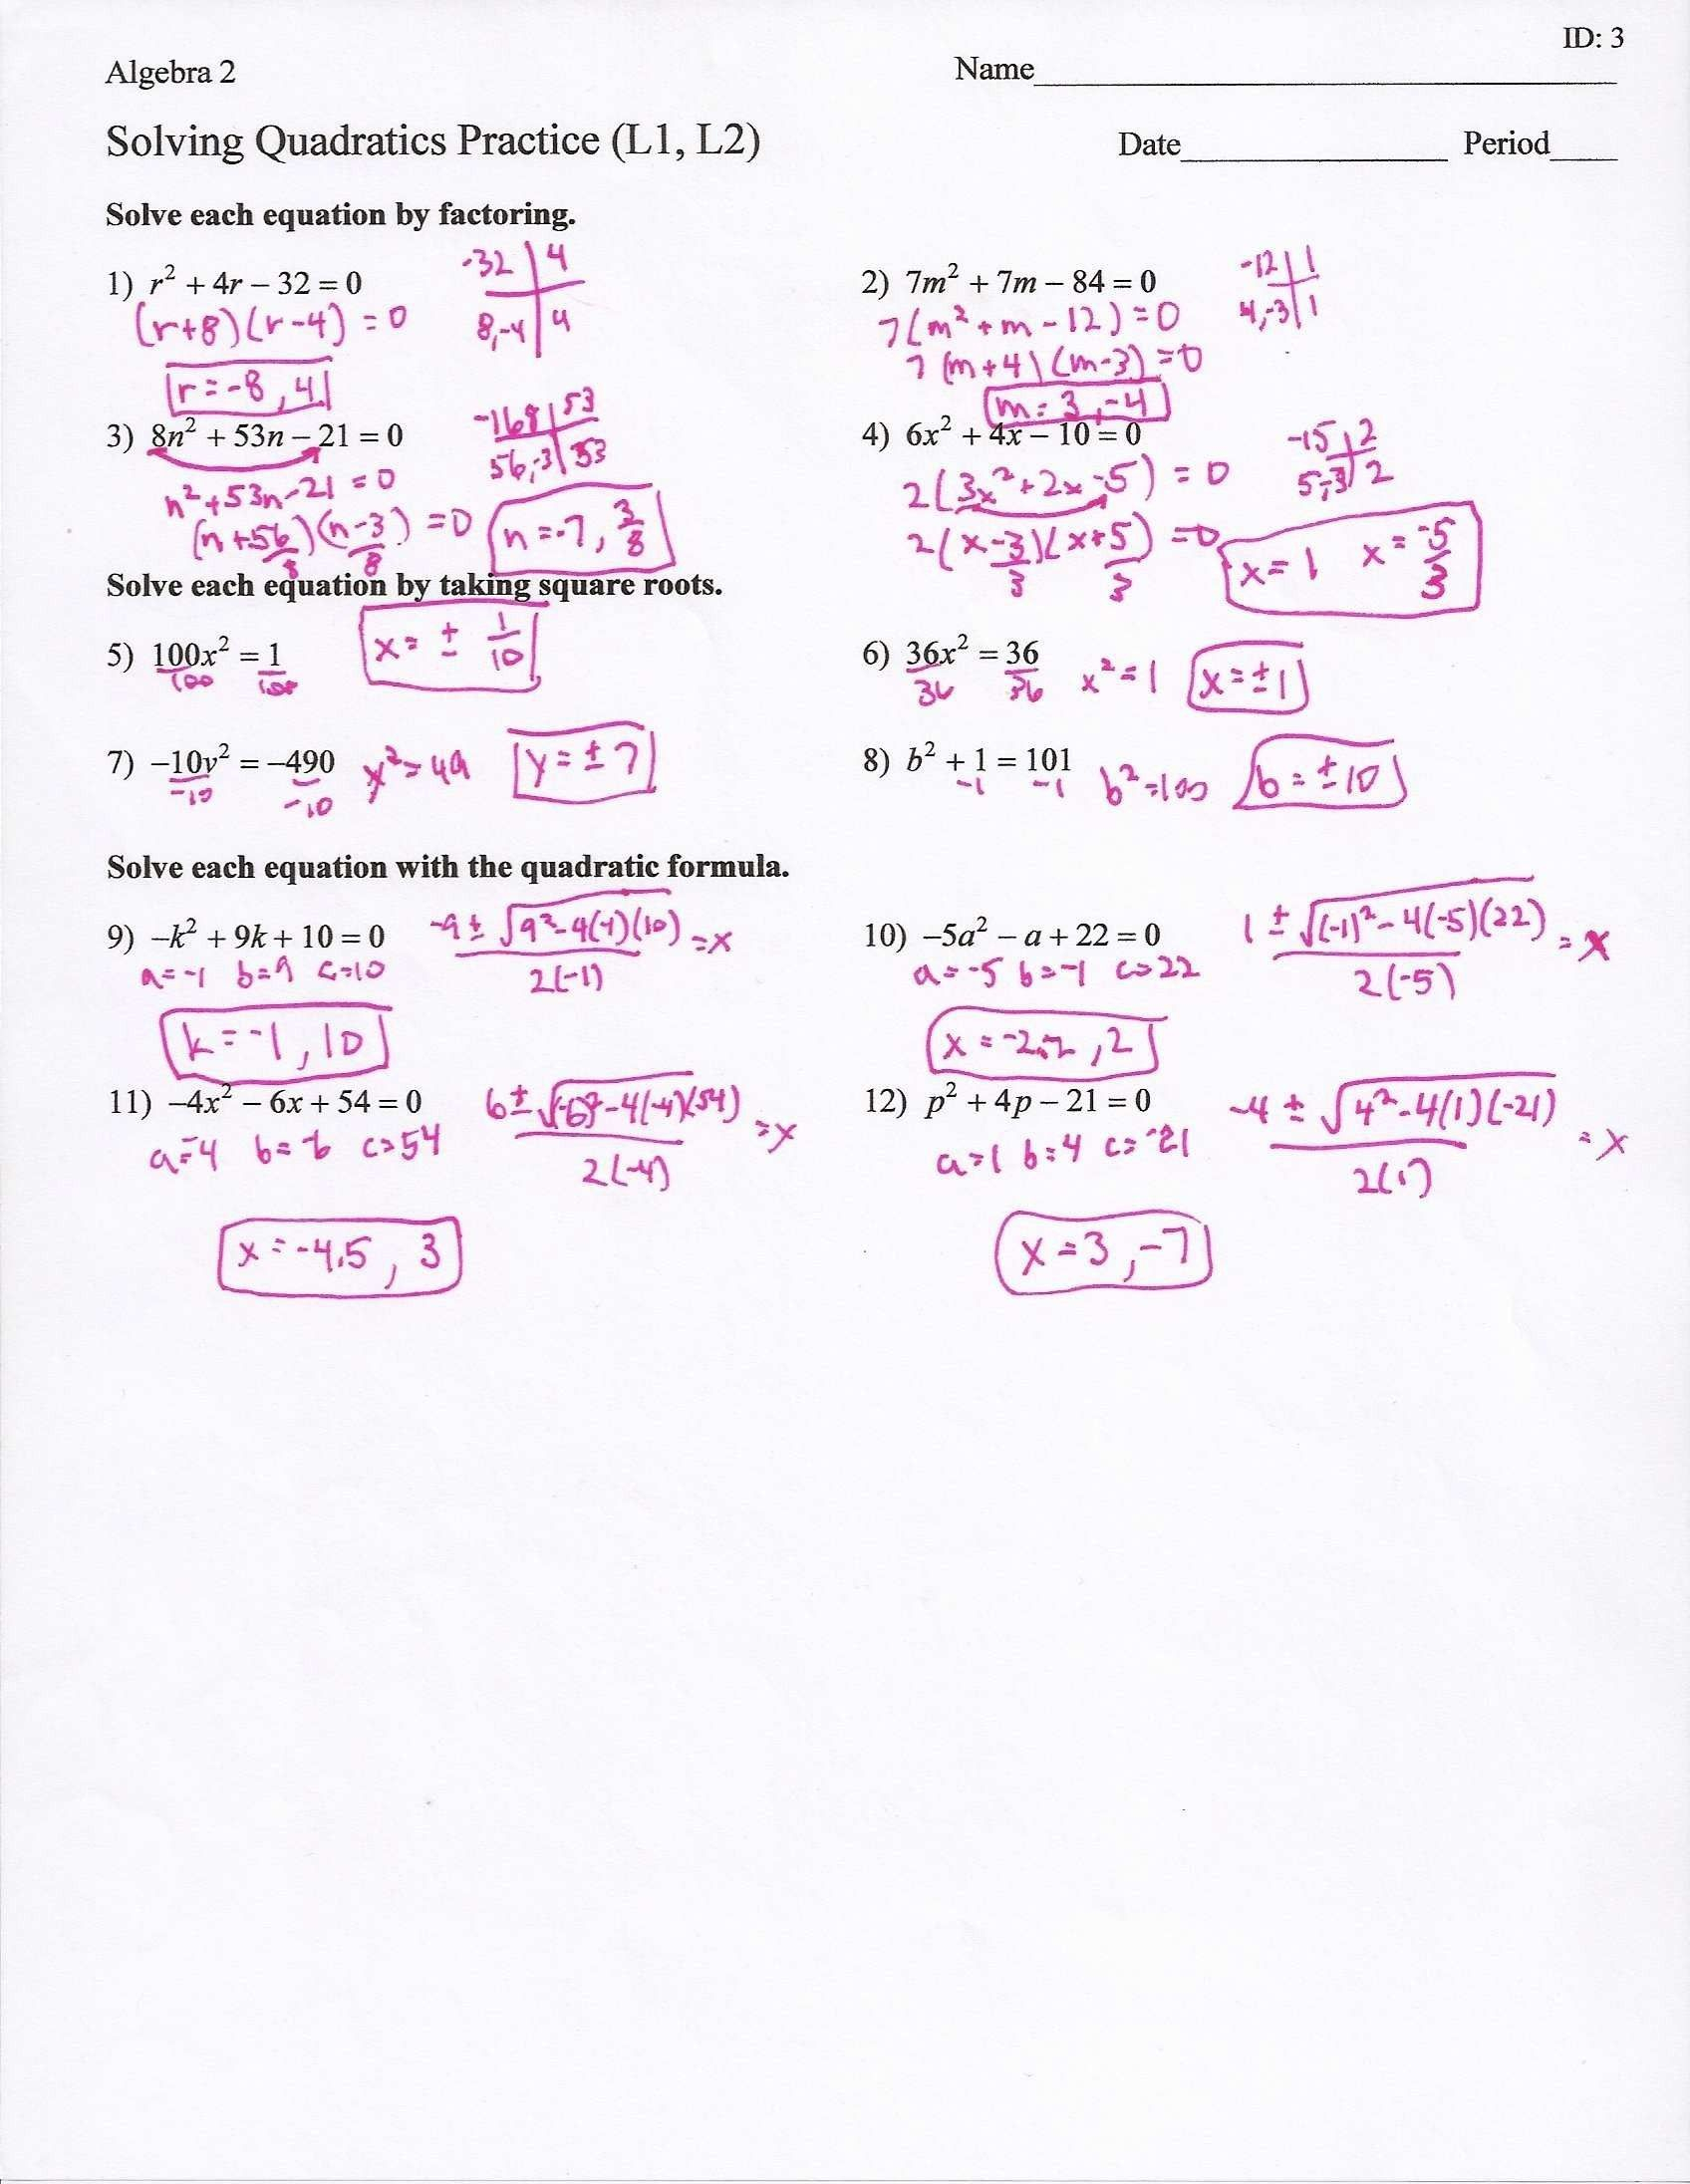 ID: 3
Algebra 2
Name
Solving Quadratics Practice (L1, L2)
Date Period
Solve each equation by factoring.
1) r² + 4r − 32 = 0
-32 | 4
8,-4 | 4
(r+8)(r-4) = 0
r = -8, 4
2) 7m² + 7m − 84 = 0
-12 | 1
4,-3 | 1
7(m² + m - 12) = 0
7(m+4)(m-3) = 0
m = 3, -4
3) 8n² + 53n − 21 = 0
-168 | 53
56,-3 | 53
n² + 53n - 21 = 0
(n + 56/8)(n - 3/8) = 0
n = -7, 3/8
4) 6x² + 4x − 10 = 0
-15 | 2
5,-3 | 2
2(3x² + 2x - 5) = 0
2(x - 3/3)(x + 5/3) = 0
x = 1 x = -5/3
Solve each equation by taking square roots.
5) 100x² = 1
100 100
x = ± 1/10
6) 36x² = 36
36 36
x² = 1
x = ±1
7) −10v² = −490
-10 -10
y² = 49
y = ± 7
8) b² + 1 = 101
-1 -1
b² = 100
b = ±10
Solve each equation with the quadratic formula.
9) −k² + 9k + 10 = 0
a = -1 b = 9 c = 10
-9 ± √(9² - 4(-1)(10)) / 2(-1) = x
k = -1, 10
10) −5a² − a + 22 = 0
a = -5 b = -1 c = 22
1 ± √((-1)² - 4(-5)(22)) / 2(-5) = x
x = -2.2, 2
11) −4x² − 6x + 54 = 0
a = -4 b = -6 c = 54
6 ± √((-6)² - 4(-4)(54)) / 2(-4) = x
x = -4.5, 3
12) p² + 4p − 21 = 0
a = 1 b = 4 c = -21
-4 ± √(4² - 4(1)(-21)) / 2(1) = x
x = 3, -7